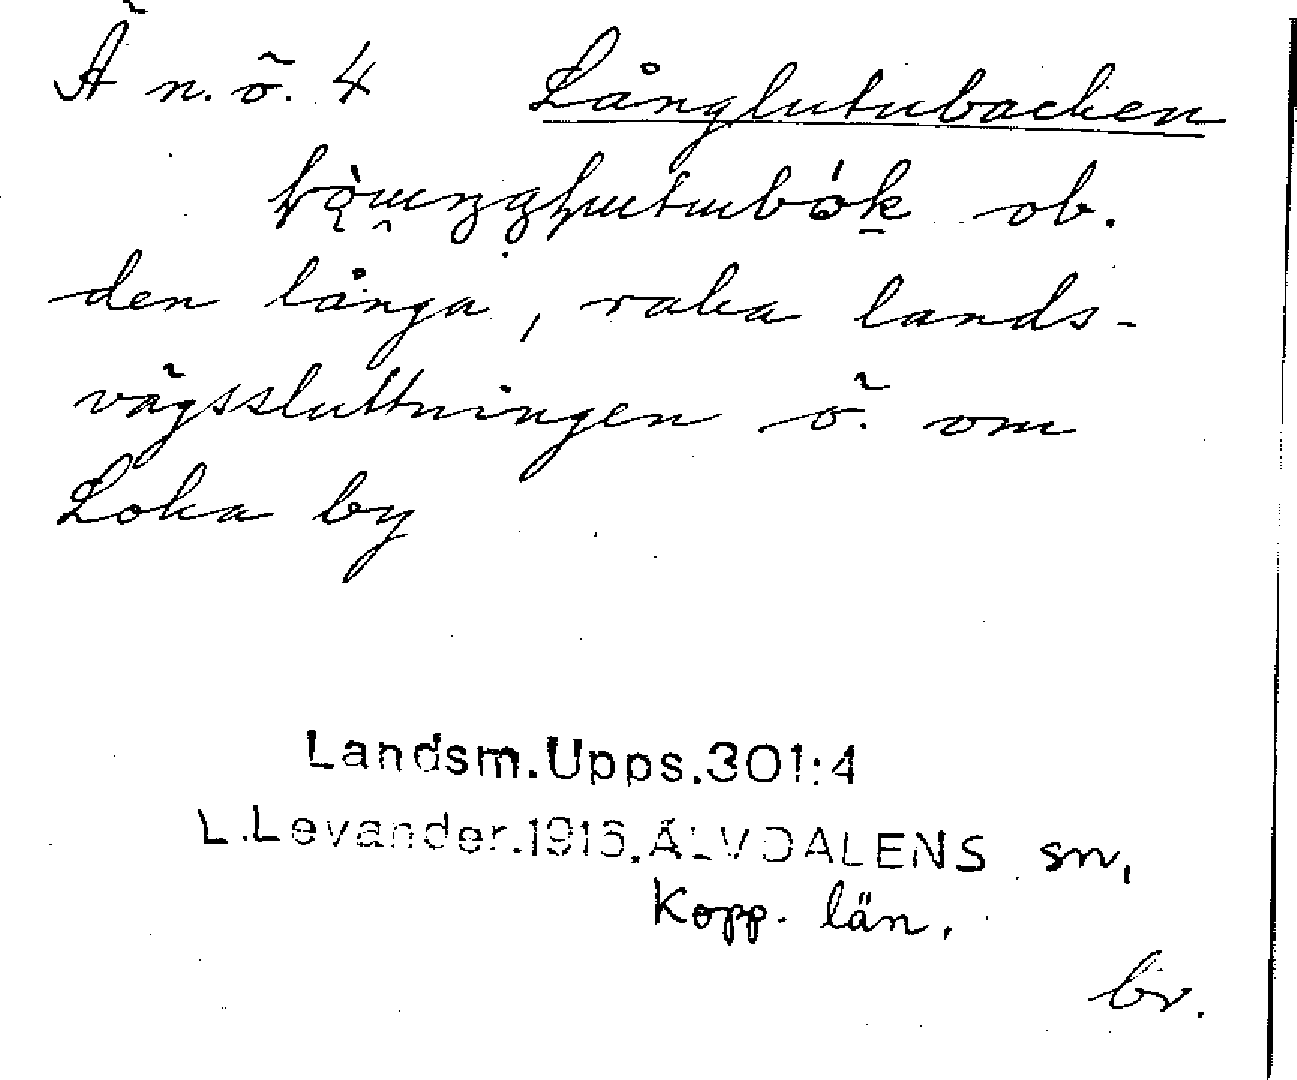 Ä n. ö. 4 Långlutubacken
ob.
den långa, raka lands-
vägssluttningen ö. om
Loka by
Landsm.Upps.301:4
L.Levander.1916.ÄLVDALENS sn,
Kopp. län.
br.